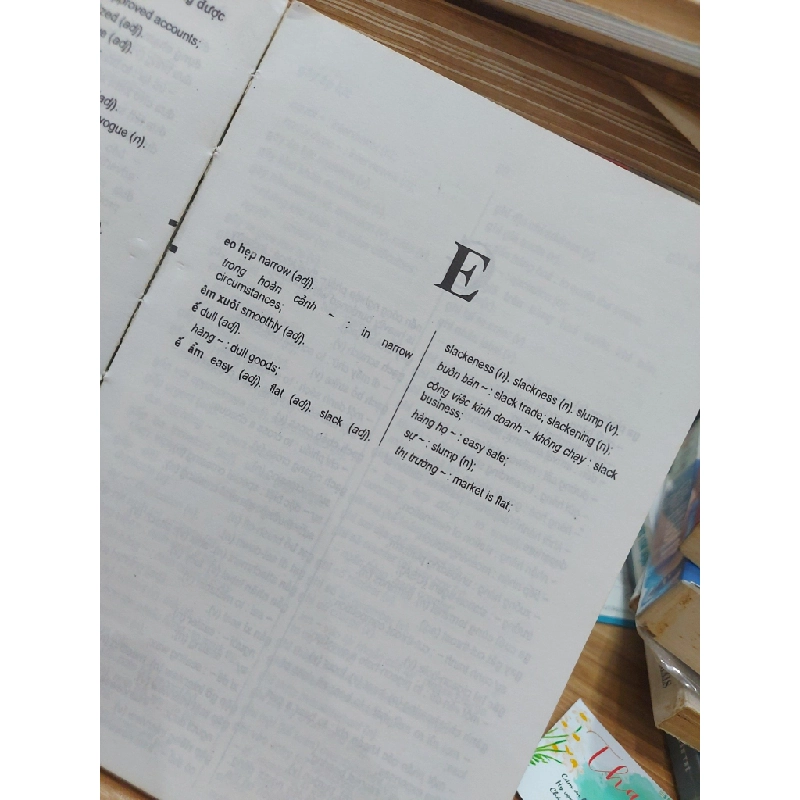 g được
proved accounts;
zed (adj).
e (adj).
adj).
vogue (n).
E
eo hẹp narrow (adj).
trong hoàn cảnh ~ : in narrow
circumstances;
êm xuôi smoothly (adj).
ế dull (adj).
hàng ~ : dull goods;
ế ẩm easy (adj). flat (adj). slack (adj).
slackeness (n). slackness (n). slump (v).
buôn bán ~ : slack trade, slackening (n);
công việc kinh doanh ~ không chạy : slack
business;
hàng họ ~ : easy sale;
sự ~ : slump (n);
thị trường ~ : market is flat;
Tha
Cảm